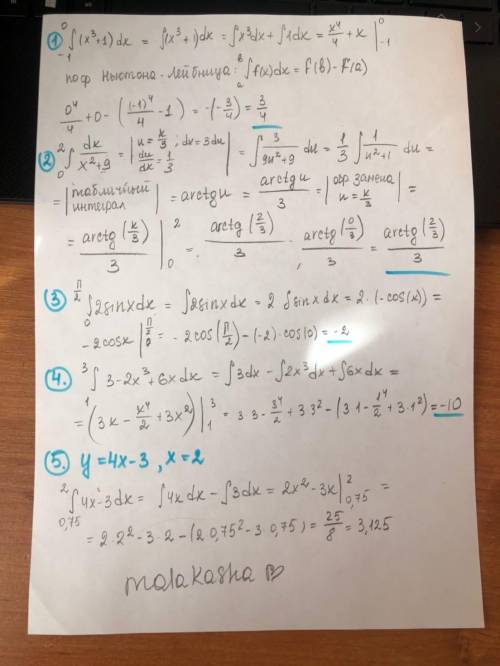 ① ₋₁∫⁰ (x³+1)dx = ∫(x³+1)dx = ∫x³dx + ∫1dx = x⁴/4 + x |₋₁⁰
по ф. Ньютона-Лейбница: ₐ∫ᵇ f(x)dx = F(b) - F(a)
0⁴/4 + 0 - ((-1)⁴/4 - 1) = -(-3/4) = 3/4
② ₀∫² dx/(x²+9) = | u = x/3 ; dx = 3du ; du/dx = 1/3 | = ∫ 3/(9u²+9) du = 1/3 ∫ 1/(u²+1) du =
= | табличный интеграл | = arctgu = arctgu/3 = | обр замена u = x/3 | =
= arctg(x/3)/3 |₀² = arctg(2/3)/3 ; arctg(0/3)/3 = arctg(2/3)/3
③ ₀∫^(π/2) 2sinxdx = ∫2sinxdx = 2 ∫sinxdx = 2·(-cos(x)) =
-2cosx |₀^(π/2) = -2cos(π/2) - (-2)·cos(0) = -2
④. ₁∫³ 3-2x³+6xdx = ∫3dx - ∫2x³dx + ∫6xdx =
= (3x - x⁴/2 + 3x²) |₁³ = 3·3 - 3⁴/2 + 3·3² - (3·1 - 1⁴/2 + 3·1²) = -10
⑤. y = 4x-3, x = 2
₀,₇₅∫² 4x-3dx = ∫4xdx - ∫3dx = 2x² - 3x |₀,₇₅² =
= 2·2² - 3·2 - (2·0,75² - 3·0,75) = 25/8 = 3,125
malakasha